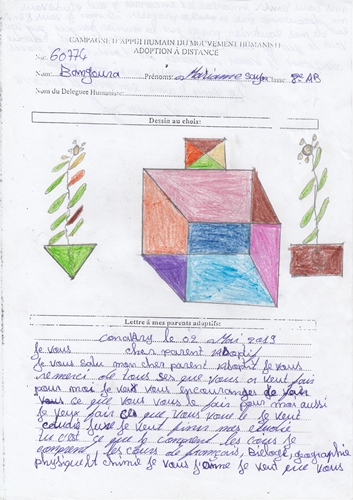 CAMPAGNE D'APPUI HUMAIN DU MOUVEMENT HUMANISTE
ADOPTION À DISTANCE
No: 60774
Nom: Bangoura Prénoms: Marianne Classe: 8e AB
Nom du Delegue Humaniste:
Dessin au choix:
Lettre à mes parents adoptifs:
conakry le 02 Mai 2013
Je vous cher parent adoptif
Je vous salu mon cher parent adoptif Je vous
remerci de tous ses que vous fait
pour moi Je vous encourages de fair
vous ce que vous vous le fair pour moi aussi
Je veux fais ces que vous Je veut
Je veut finir mes
c'est ce que le comprent les cours Je
comprent les cours de français, Biologie, geographie
physique et chimie Je vous que vous